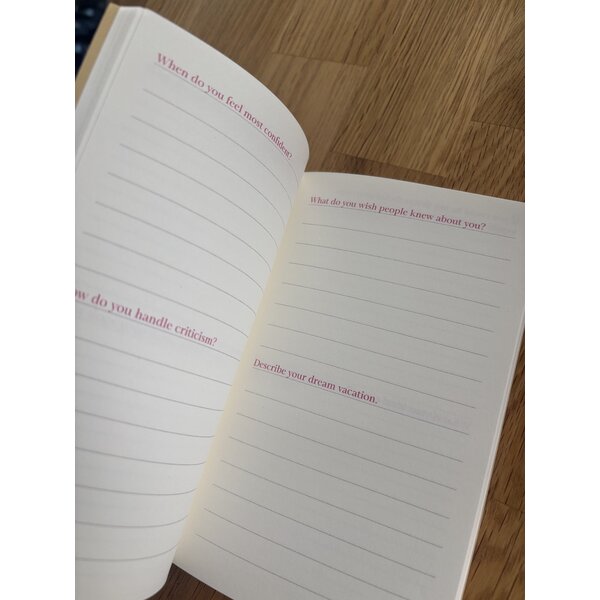 When do you feel most confident?
ow do you handle criticism?
What do you wish people knew about you?
Describe your dream vacation.